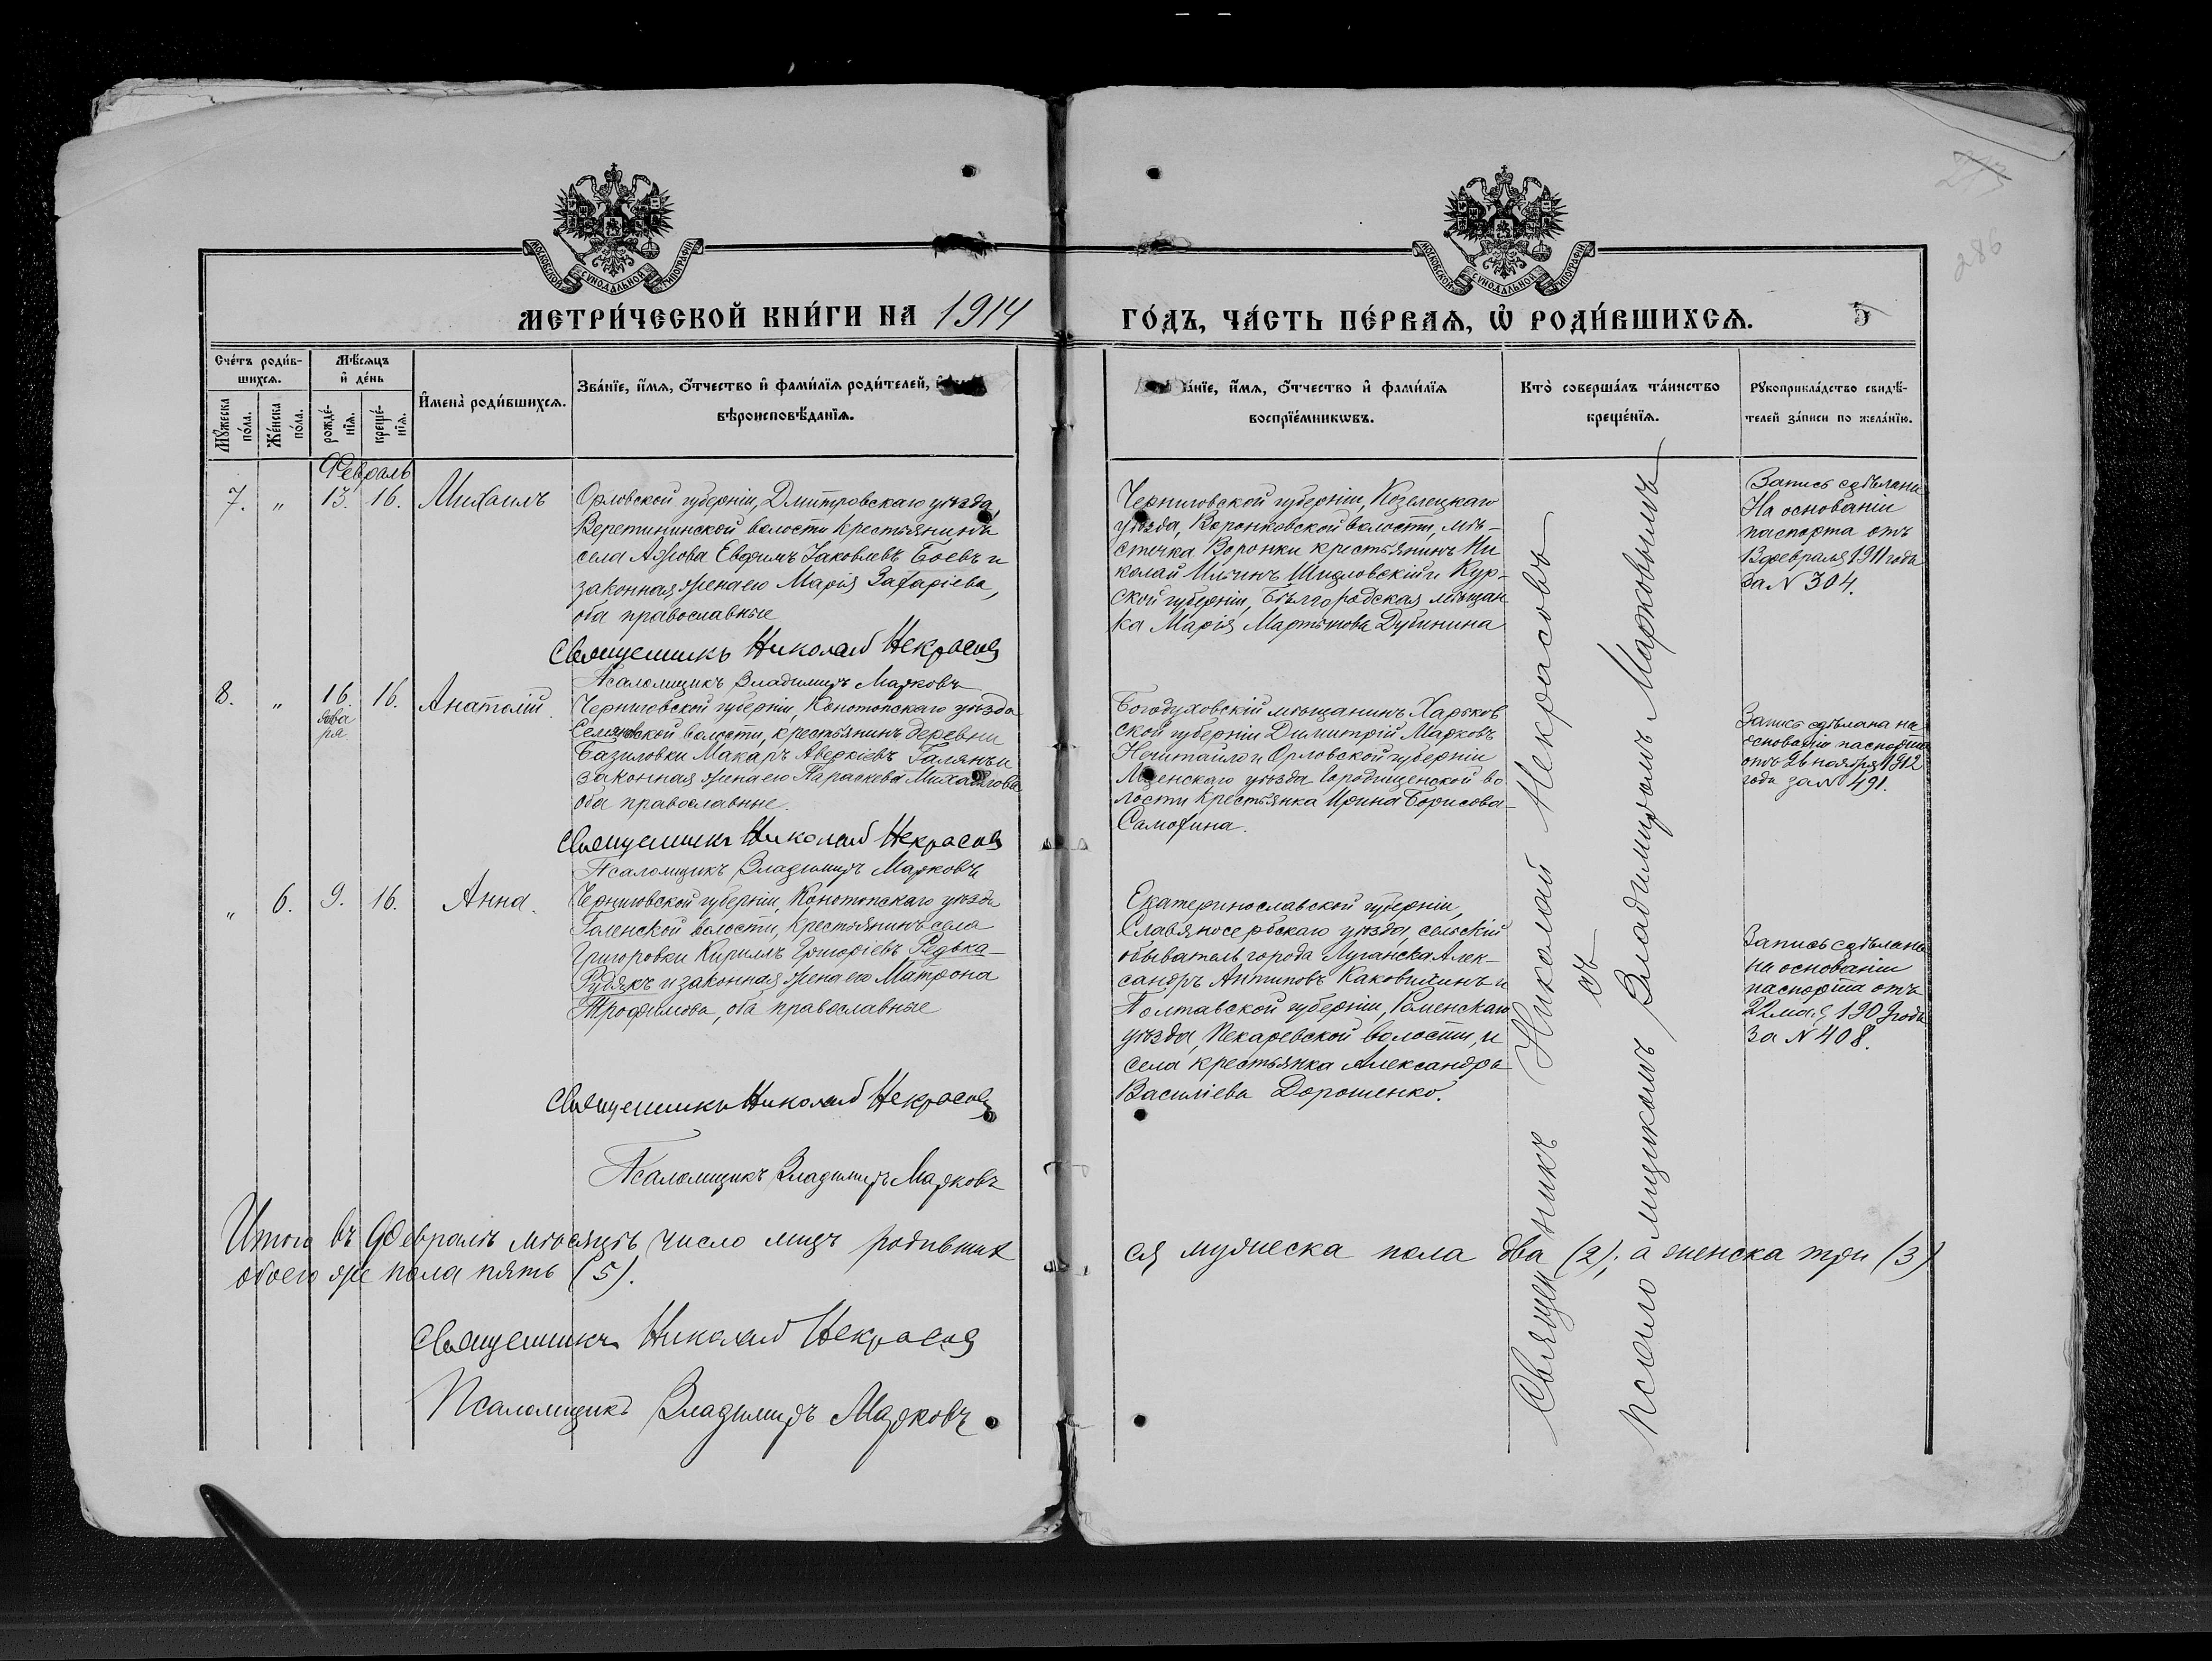 МОСКОВСКОЙ СѴНОДАЛЬНОЙ ТИПОГРАФІИ
МОСКОВСКОЙ СѴНОДАЛЬНОЙ ТИПОГРАФІИ
286
МЕТРИ́ЧЕСКОЙ КНИ́ГИ НА 1914
ГО́ДЪ, ЧА́СТЬ ПЕ́РВАѦ, Ѡ҆ РОДИ́ВШИХСѦ.
5
Сче́тъ роди́в-
шихсѧ.
Мѣ́сѧцъ
и҆ де́нь
Мꙋ́жеска по́ла.
Же́нска по́ла.
рожде́-
нїѧ.
креще́-
нїѧ.
И҆мена̀ роди́вшихсѧ.
Зва́нїе, и҆́мѧ, ѻ҆́тчество и҆ фами́лїѧ роди́телей,
вѣроисповѣ́данїѧ.
ва́нїе, и҆́мѧ, ѻ҆́тчество и҆ фами́лїѧ
воспрїе́мникѡвъ.
Кто̀ соверша́лъ та́инство
креще́нїѧ.
Рꙋкоприкла́дство свидѣ́-
телей за́писи по жела́нїю.
Февраль
7. „ 13. 16. Михаилъ
Орловской губерніи, Дмитровскаго уѣзда
Веретининской волости крестьянинъ
села Ажова Евфимъ Іаковлевъ Боевъ и
законная жена его Марія Захаріева,
оба православные
Священникъ Николай Некрасовъ
Псаломщикъ Владимиръ Марковъ
Черниговской губерніи, Козелецкаго
уѣзда, Воронковской волости, мѣ-
стечка Воронки крестьянинъ Ни
колай Ильинъ Шидловскій и Кур-
ской губерніи, Бѣлгородская мѣщан
ка Марія Мартынова Дубинина
Запись сдѣлана
На основаніи
паспорта отъ
13 февраля 1911 года
за N 304.
8. „ 16 января 16. Анатолій
Черниговской губерніи, Конотопскаго уѣзда
волости, крестьянинъ деревни
Базиловки Макаръ Аверкіевъ Галянъ и
законная жена его Параскева Михайлова
оба православные.
Священникъ Николай Некрасовъ
Псаломщикъ Владимиръ Марковъ
Богодуховскій мѣщанинъ Харьков
ской губерніи Димитрій Марковъ
Нечитайло и Орловской губерніи
Мценскаго уѣзда Городищенской во
лости крестьянка Ирина Борисова
Самохина.
Запись сдѣлана на
основаніи паспорта
отъ 26 ноября 1912
года за N 491.
„ 6. 9. 16. Анна.
Черниговской губерніи, Конотопскаго уѣзда
Голенской волости, крестьянинъ села
Григоровки Кириллъ Григоріевъ Редька-
Рудякъ и законная жена его Матрона
Трофимова, оба православные
Священникъ Николай Некрасовъ
Псаломщикъ Владимиръ Марковъ
Екатеринославской губерніи,
Славяносербскаго уѣзда, сельскій
обыватель города Луганска Алек-
сандръ Антиповъ Каковихинъ и
Полтавской губерніи, Роменскаго
уѣзда, Пекаревской волости, и
села крестьянка Александра
Василіева Дорошенко.
Запись сдѣлана
на основаніи
паспорта отъ
22 мая 1909 года
За N 408.
Священникъ Николай Некрасовъ
съ
Псаломщикомъ Владимиромъ Марковымъ
Итого въ Февралѣ мѣсяцѣ число лицъ родивших
ся мужеска пола два (2); а женска три (3)
обоего же пола пять (5).
Священникъ Николай Некрасовъ
Псаломщикъ Владимиръ Марковъ